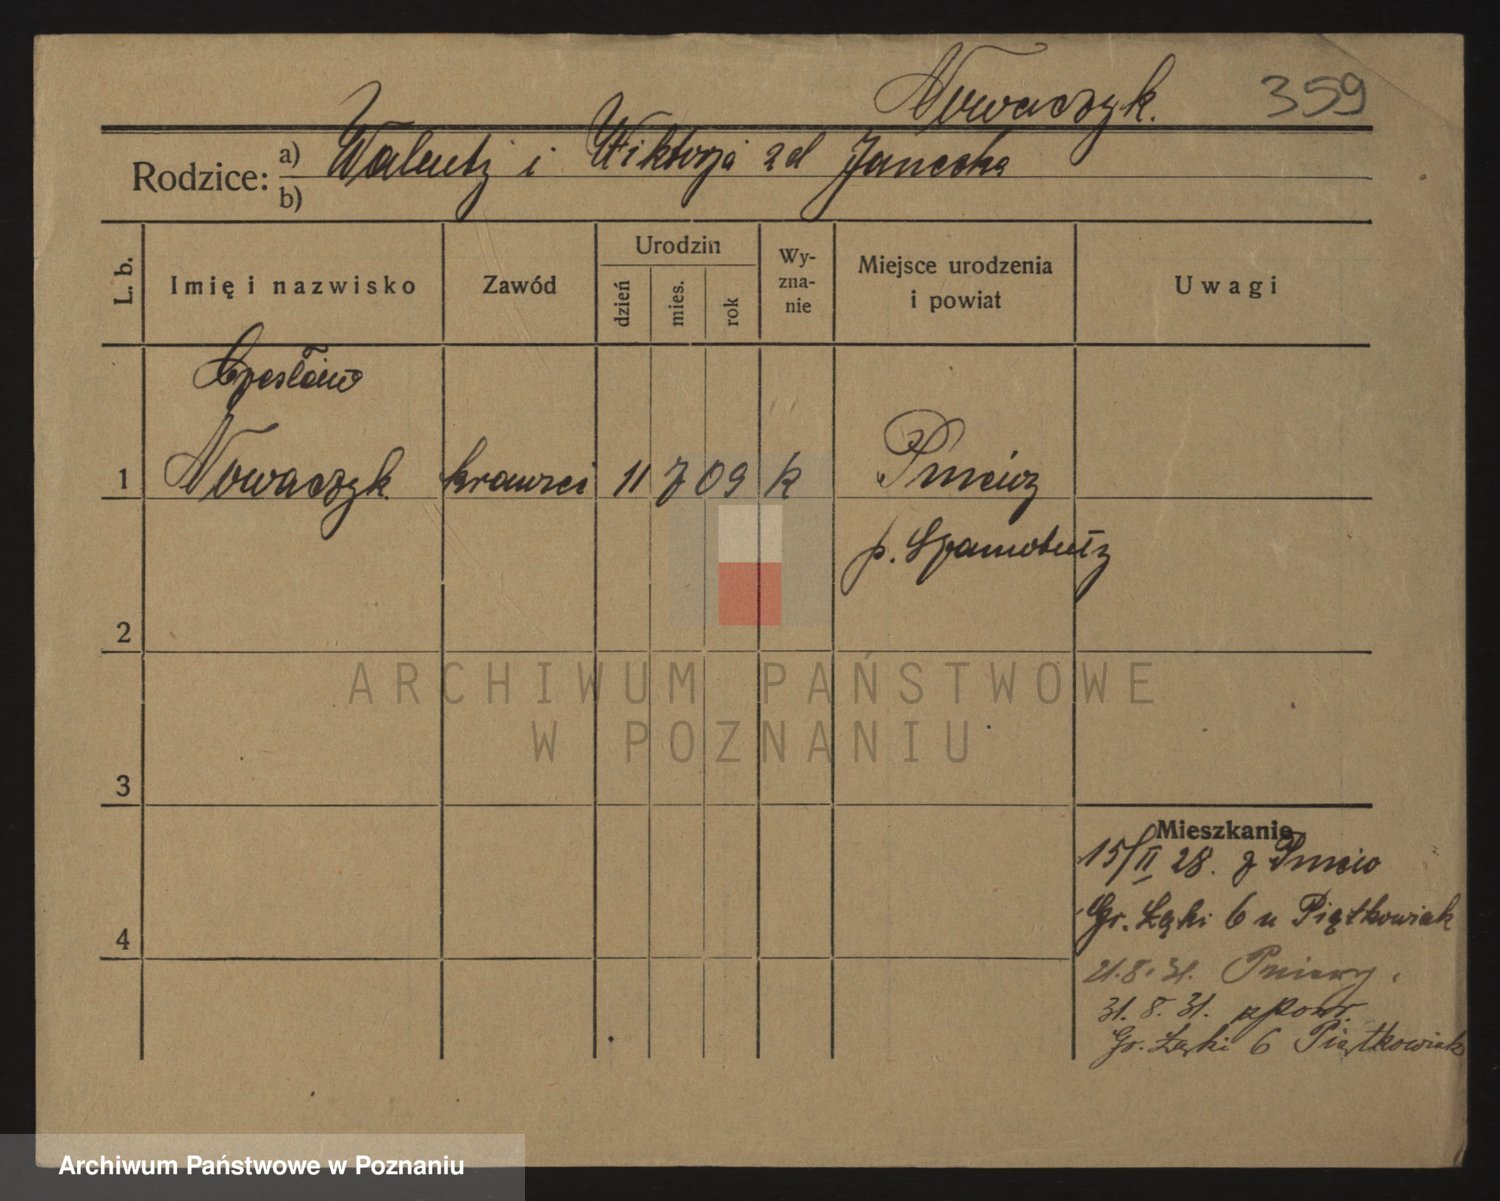 Nowaczyk. 359
Rodzice: a) Walenty i Wiktorja zd Janecka
b)
L. b. Imię i nazwisko Zawód Urodzin dzień mies. rok Wy-zna-nie Miejsce urodzenia i powiat Uwagi
Czesław
1 Nowaczyk krawiec 11 7 09 k Pniewy
p. Szamotuły
2
3
4
Mieszkanie
15/II 28. z Pniew
Gr. Łąki 6 u Piątkowiak
21.8.31. Pniewy.
31.8.31. z pow.
Gr. Łąki 6 Piątkowiak
ARCHIWUM PAŃSTWOWE
W POZNANIU
Archiwum Państwowe w Poznaniu